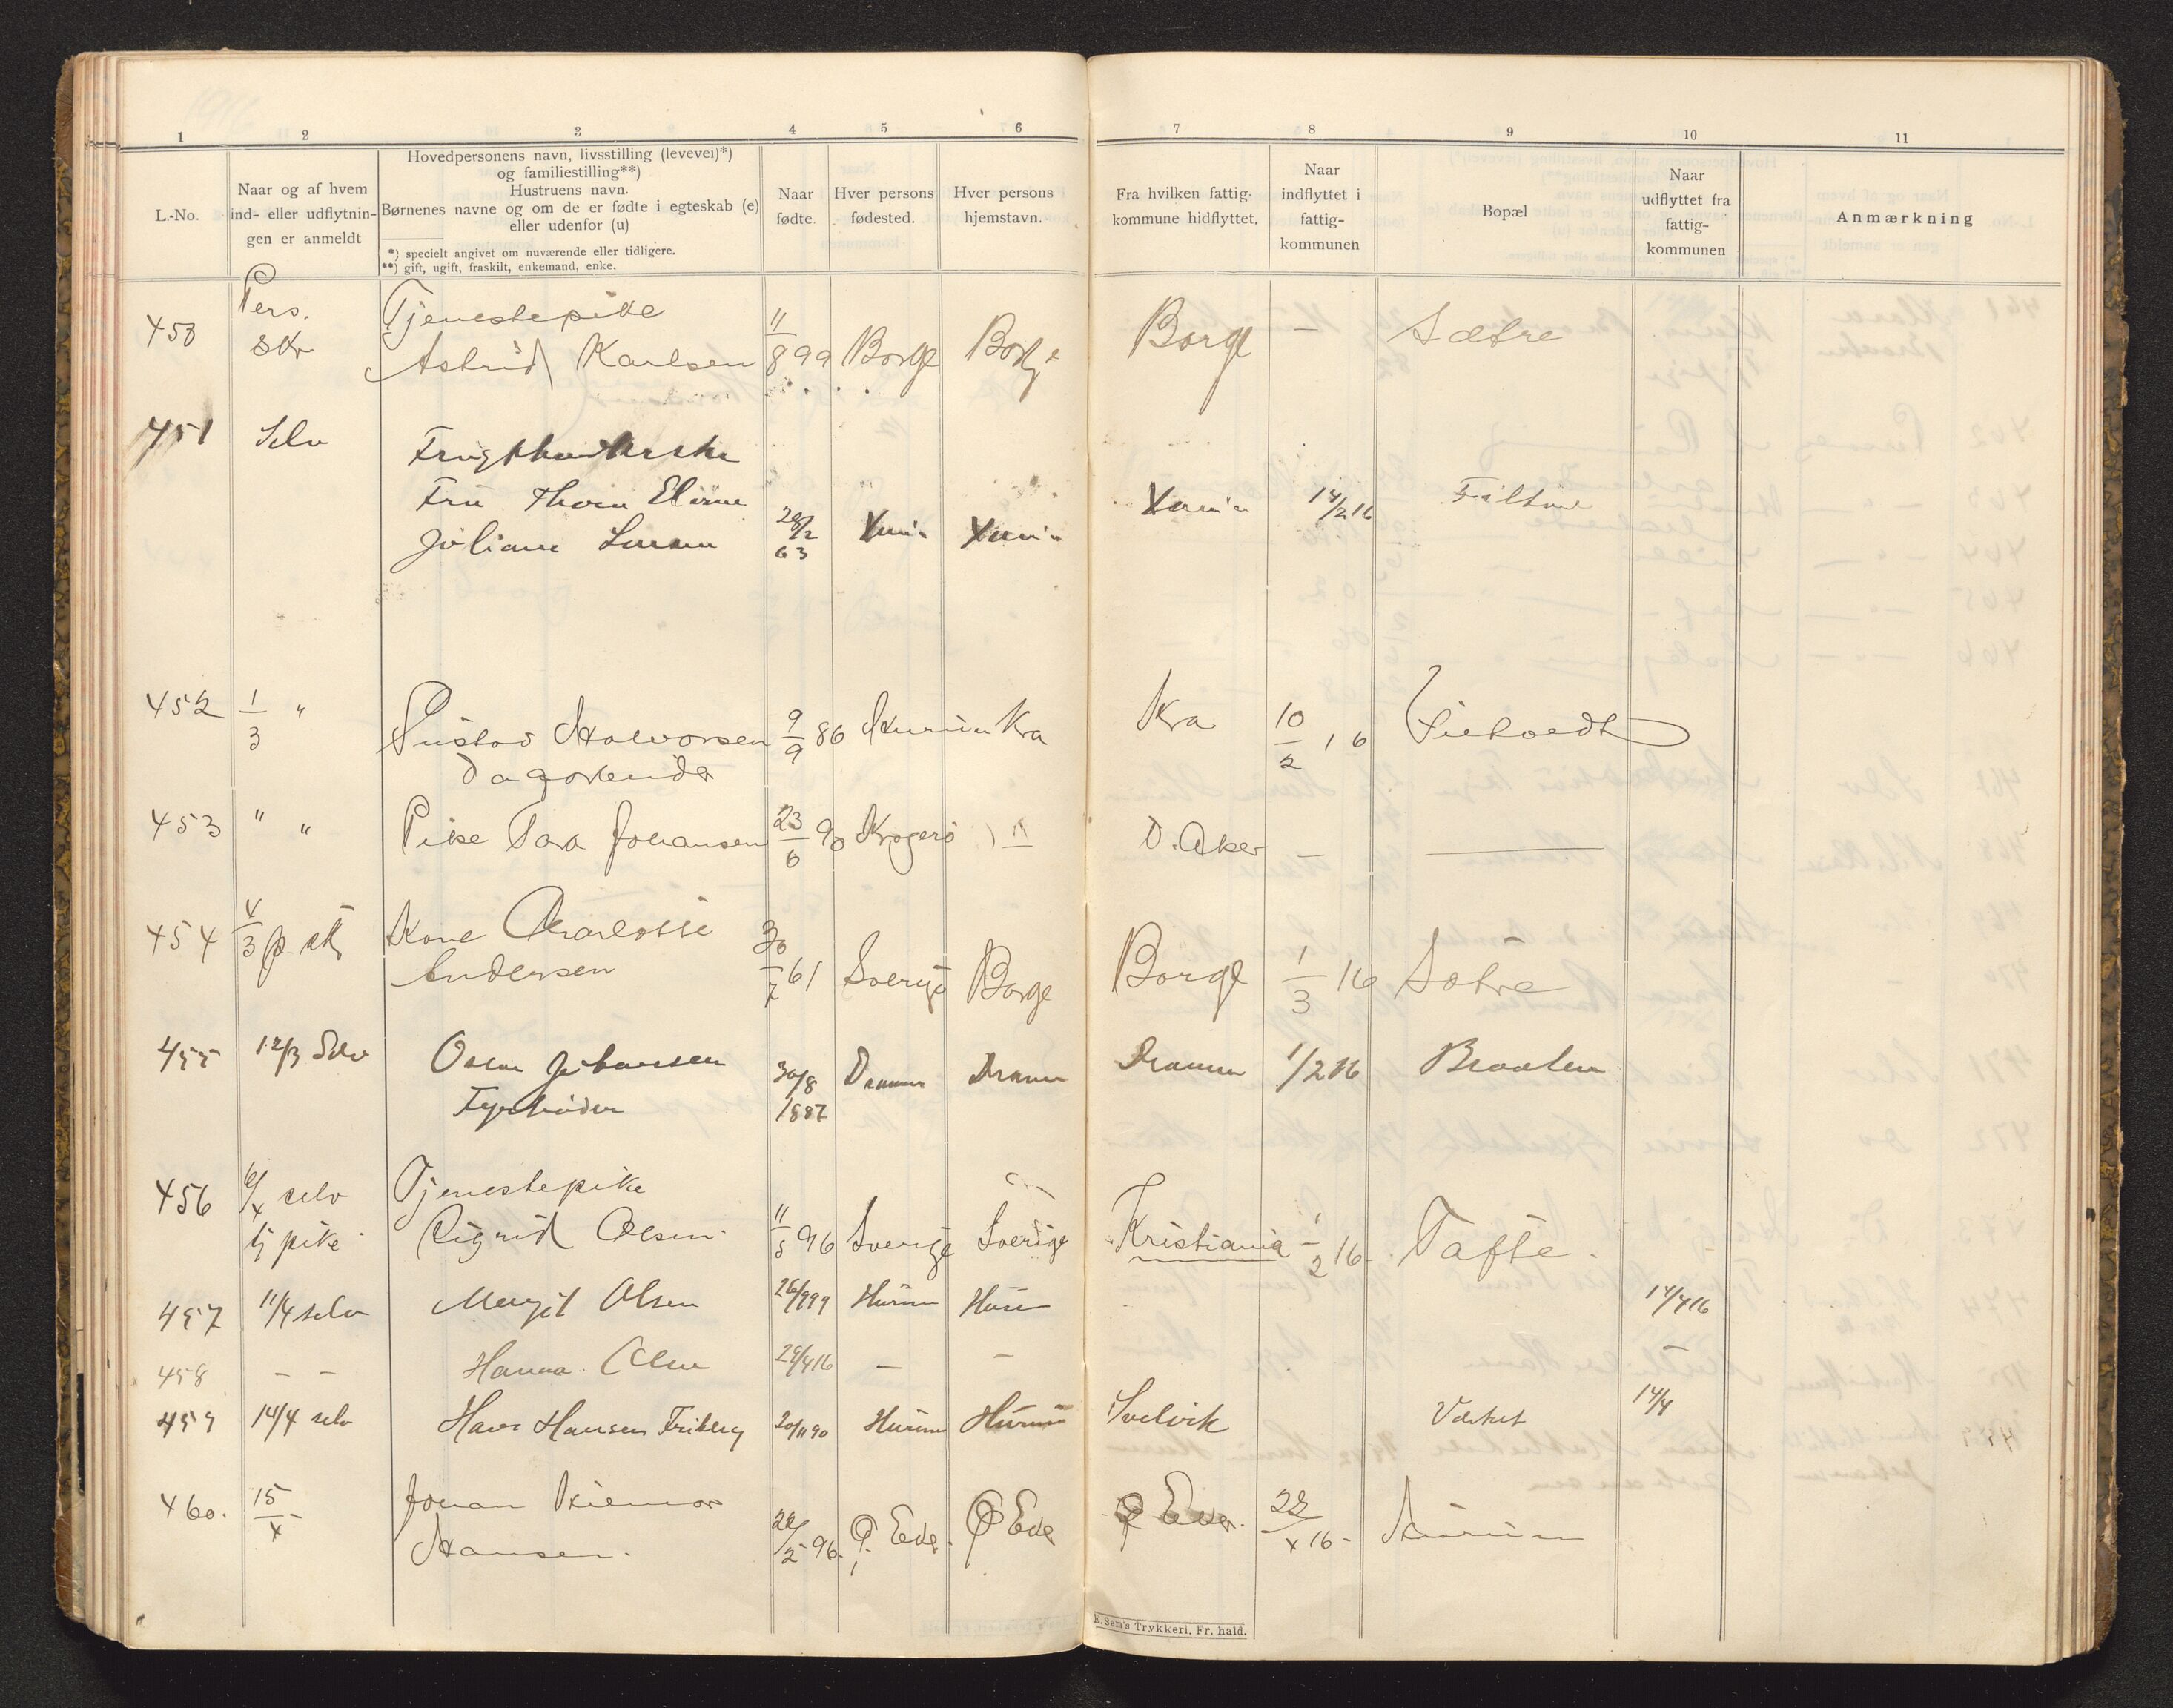 1 2 3 4 5 6 7 8 9 10 11
L.-No.
Naar og af hvem
ind- eller udflytnin-
gen er anmeldt
Hovedpersonens navn, livsstilling (levevei)*)
og familiestilling**)
Hustruens navn.
Børnenes navne og om de er fødte i egteskab (e)
eller udenfor (u)
*) specielt angivet om nuværende eller tidligere.
**) gift, ugift, fraskilt, enkemand, enke.
Naar
fødte.
Hver persons
fødested.
Hver persons
hjemstavn.
Fra hvilken fattig-
kommune hidflyttet.
Naar
indflyttet i
fattig-
kommunen
Bopæl
Naar
udflyttet fra
fattig-
kommunen
Anmærkning
Pers. Tjenestepike 11
450 skr Astrid Karlsen 8 99 Borge Borge Borge — Sætre
451 Selv
Fru Thora
14/2 16
Juliane 28/2 63
452 1/3 " Gustav Halvorsen 9/9 86 Hurum Kra Kra 10/2 16
453 " " Pike Tora Johansen 23/6 90 Kragerø " Ø. Aker — —
454 4/3 p sk Kone Charlotte
Andersen 30/7 61 Sverige Borge Borge 1/3 16 Sætre
455 12/3 Selv Oscar Johansen 30/8 Drammen Drammen Drammen 1/2 16 Braaten
Fyrbøder 1887
456 6/4 selv Tjenestepike
tj pike Sigrid Olsen 11/5 96 Sverige Sverige Kristiania 1/2 16 Tofte.
457 11/4 selv Margit Olsen 26/9 99 Hurum Hurum 14/4 16
458 — — Hanna Olsen 29/4 16 — — —
459 14/4 selv Hans Hansen Friberg 20/11 90 Hurum Hurum Svelvik Verket 14/4
460. 15/4 Johan
Hansen. 22/2 96. Ø. Eker. Ø Eker Ø Eker. 22/4 16 - Hurum
E. Sem's Trykkeri, Fr. hald.